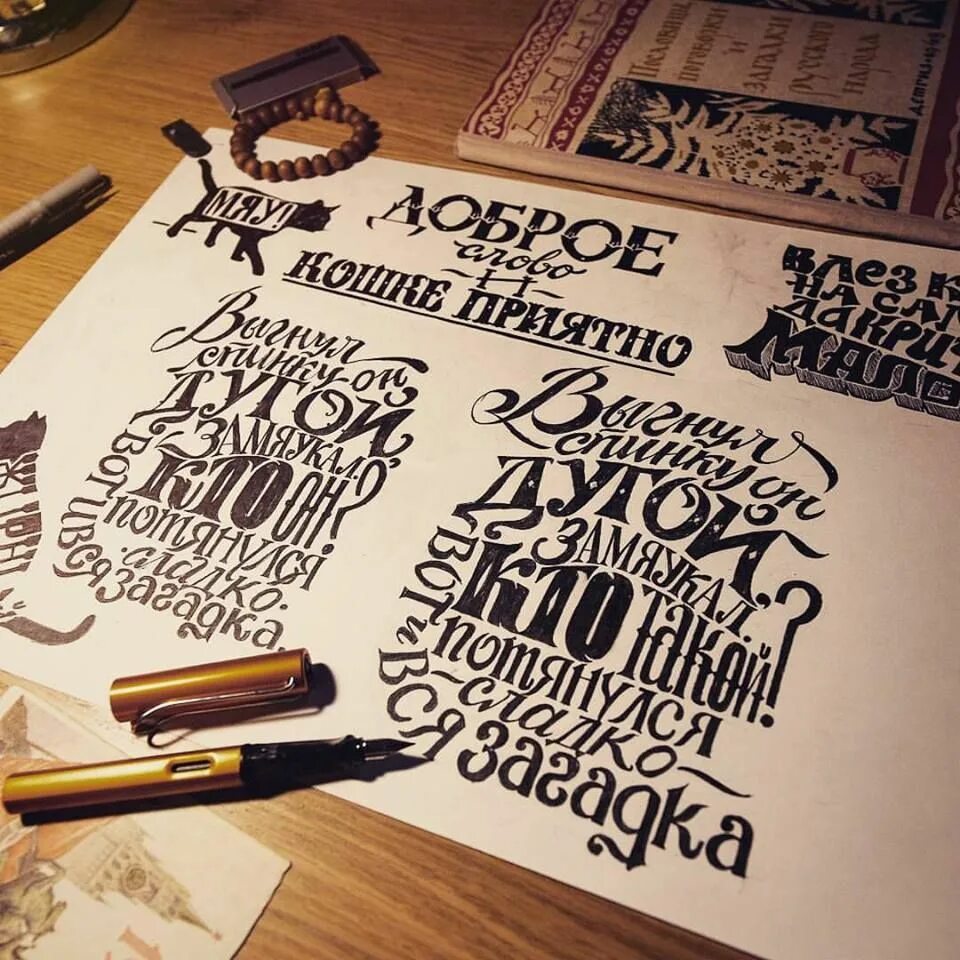 Пословицы
поговорки
и
загадки
русского
народа
МЯУ!
ДОБРОЕ
слово
и
КОШКЕ ПРИЯТНО
ВЛЕЗ
НА
МАЛЕ
Выгнул
спинку он
ДУГОЙ,
ЗАМЯУКАЛ.
КТО ОН?
потянулся
сладко.
ВОТ И ВСЯ
загадка.
Выгнул
спинку он
ДУГОЙ,
ЗАМЯУКАЛ.
КТО такой?!
потянулся
сладко
ВОТ и ВСЯ
загадка